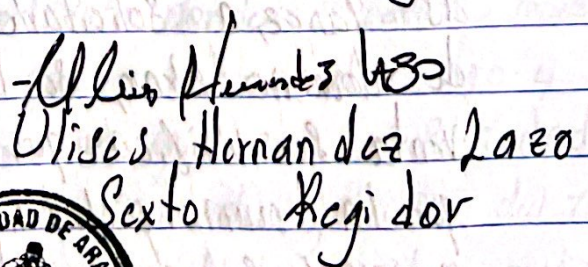 -Ulises Hernandez Lazo
Ulises Hernandez Lazo
Sexto Regidor
DAD DE ARA